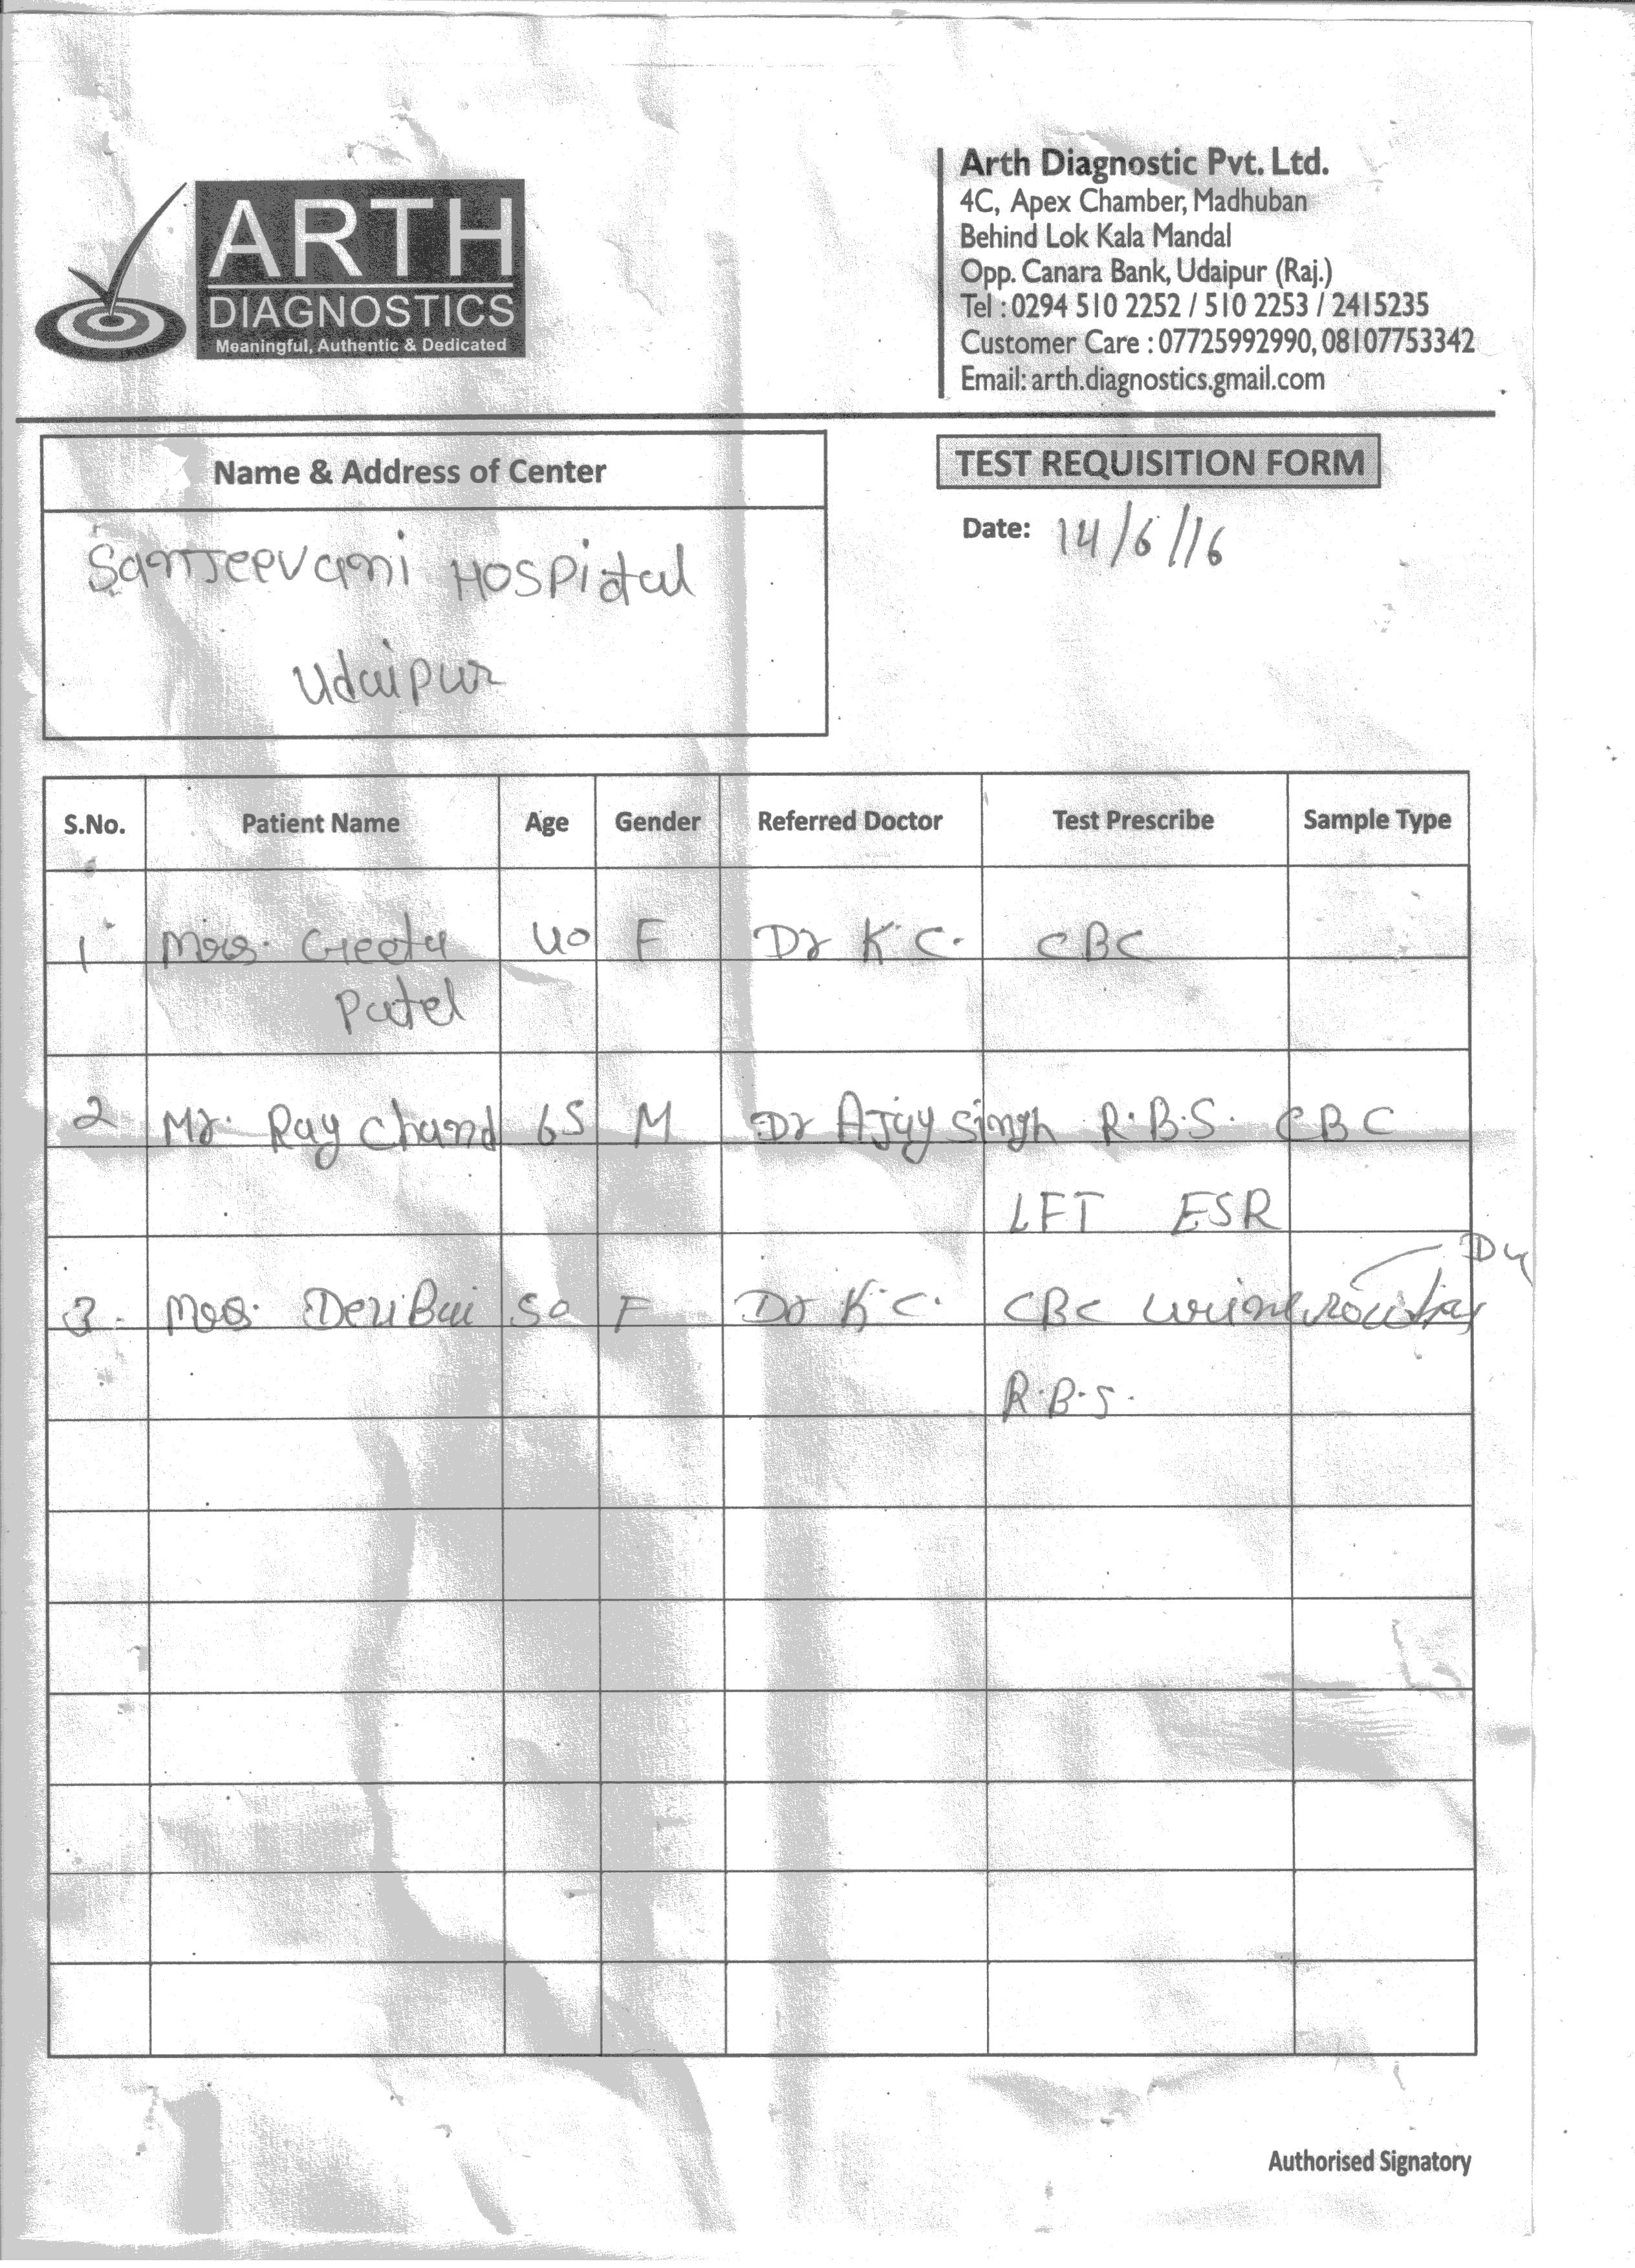 ARTH
DIAGNOSTICS
Meaningful, Authentic & Dedicated
Arth Diagnostic Pvt. Ltd.
4C, Apex Chamber, Madhuban
Behind Lok Kala Mandal
Opp. Canara Bank, Udaipur (Raj.)
Tel : 0294 510 2252 / 510 2253 / 2415235
Customer Care : 07725992990, 08107753342
Email: arth.diagnostics.gmail.com
Name & Address of Center
TEST REQUISITION FORM
Date: 14/6/16
Sanjeevani Hospital
Udaipur
S.No. Patient Name Age Gender Referred Doctor Test Prescribe Sample Type
1 Mrs. Geeta 40 F Dr K.C. CBC
Patel
2 Mr. Ray Chand 65 M Dr Ajay Singh R.B.S. CBC
LFT ESR
3. Mrs. Devi Bai 50 F Dr K.C. CBC urine
R.B.S.
Authorised Signatory